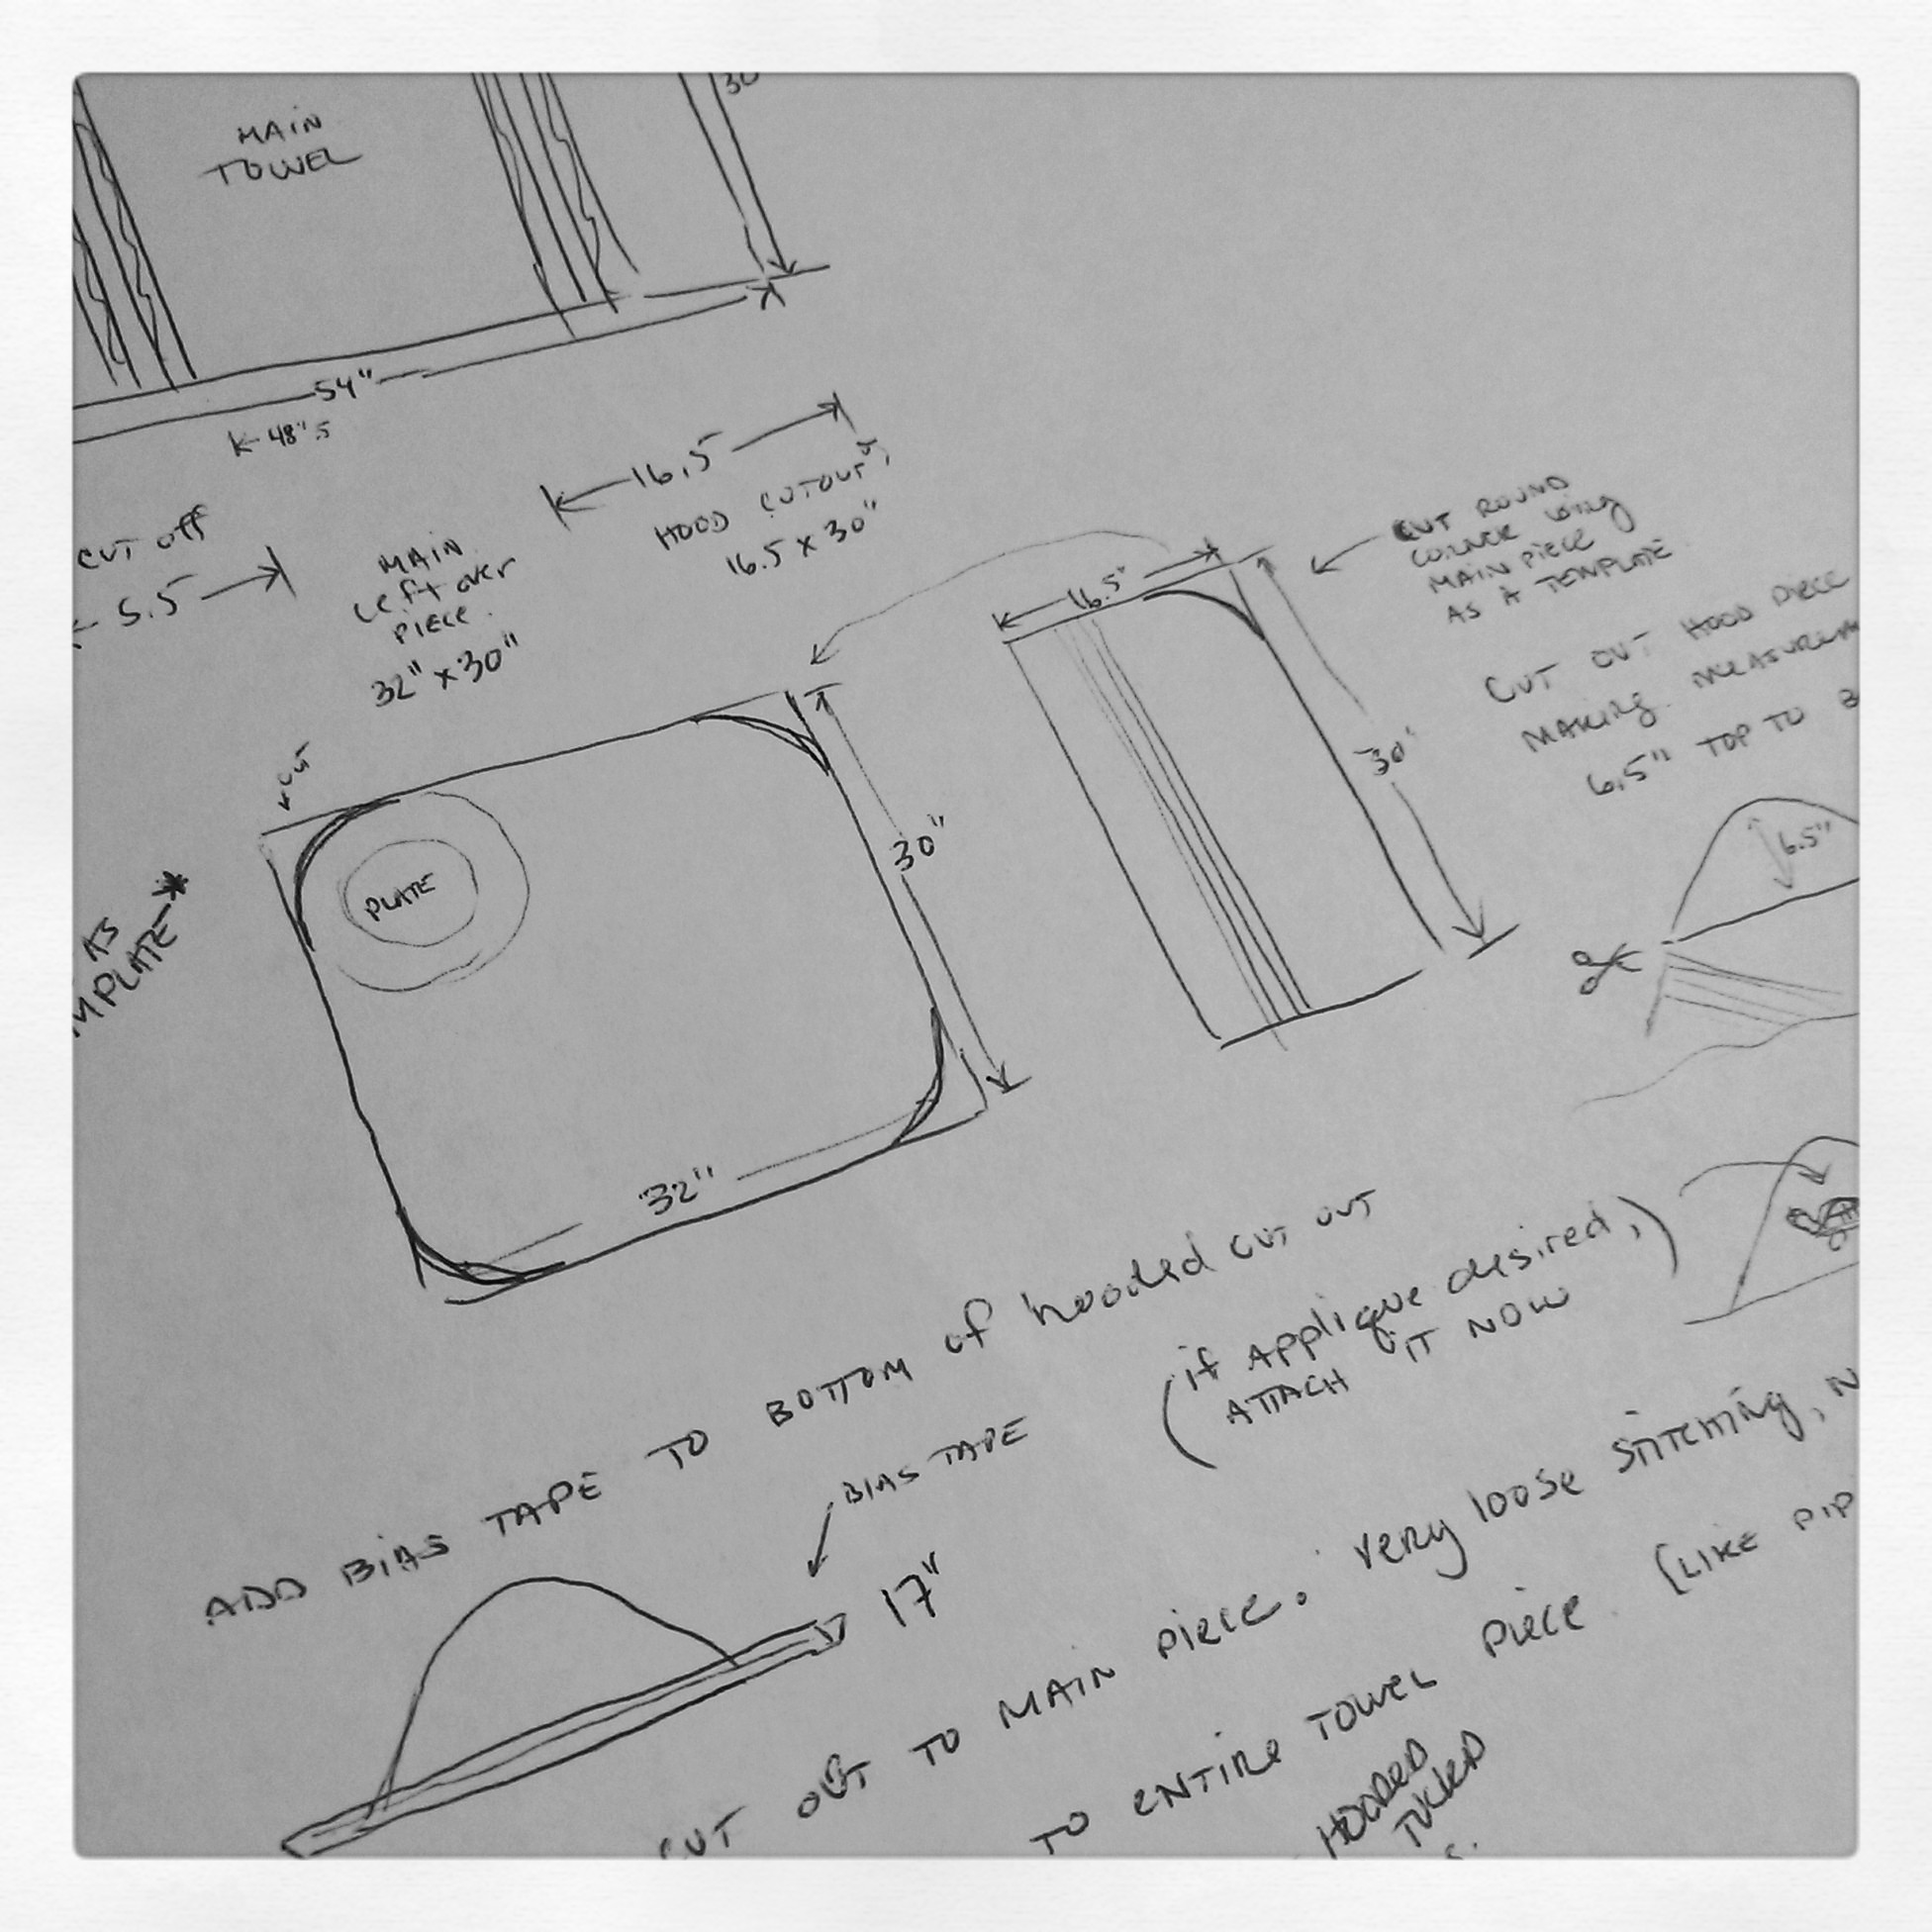 MAIN
TOWEL
30
54"
48".5
16.5
HOOD CUTOUT
16.5 x 30"
CUT off
5.5
MAIN
Left over
piece.
32" x 30"
CUT ROUND
CORNER using
MAIN PIECE
AS A TEMPLATE
16.5"
30"
CUT OUT HOOD PIECE
MAKING MEASUREM
6.5" TOP TO B
6.5"
CUT
PLATE
30"
32"
AS
MPLATE
ADD BIAS TAPE TO BOTTOM of hooded cut out
(if Applique desired,)
ATTACH IT NOW
BIAS TAPE
17"
CUT OUT TO MAIN piece. very loose stitching, N
TO ENTIRE TOWEL piece (LIKE PIP
HOODED
TUCKED